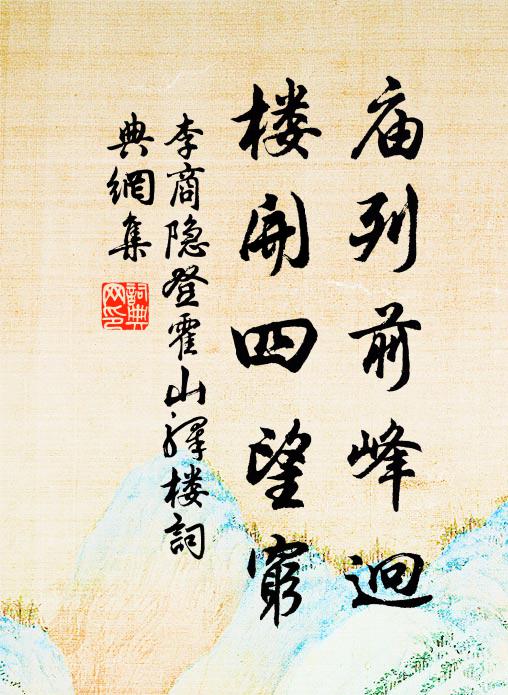 庙列前峰迥
楼开四望穷
李商隐登霍山驿楼词
典網集
詞典
网印